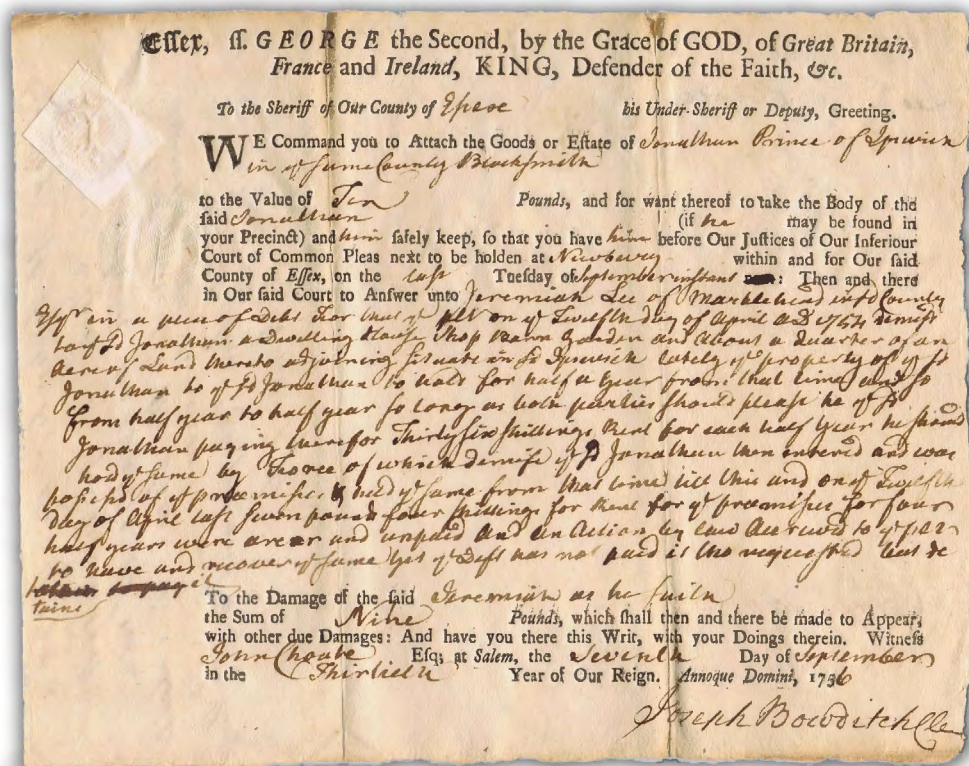 Essex, ss. GEORGE the Second, by the Grace of GOD, of Great Britain,
France and Ireland, KING, Defender of the Faith, &c.
To the Sheriff of Our County of Essex his Under-Sheriff or Deputy, Greeting.
WE Command you to Attach the Goods or Estate of Jonathan Prince of Ipswich
in ye same County Blacksmith
to the Value of Ten Pounds, and for want thereof to take the Body of the
said Jonathan (if he may be found in
your Precinct) and him safely keep, so that you have him before Our Justices of Our Inferiour
Court of Common Pleas next to be holden at Newbury within and for Our said
County of Essex, on the last Tuesday of September instant : Then and there
in Our said Court to Answer unto Jeremiah Lee of Marblehead in sd County
Esqr in a plea of Debt For that ye plt on ye Twelfth day of April AD 1754 demist
to ye sd Jonathan a Dwelling House Shop Barn Garden and about a Quarter of an
Acre of Land thereto adjoining Situate in sd Ipswich lately ye property of ye sd
Jonathan to ye sd Jonathan to hold for half a Year from that time and so
from half year to half year so long as both parties should please he ye sd
Jonathan paying therefor Thirty six shillings Rent for each half Year he should
hold ye same by Force of which demise ye sd Jonathan then entered and was
possess'd of ye premises & held ye same from that time till this and on ye Twelfth
day of April last seven pounds four shillings for Rent for ye premises for four
half years were arear and unpaid and an Action by law accrued to ye
to have and recover ye same Yet ye Deft has not paid it tho requested but de
tains
To the Damage of the said Jeremiah as he saith
the Sum of Nine Pounds, which shall then and there be made to Appear,
with other due Damages: And have you there this Writ, with your Doings therein. Witness
John Choate Esq; at Salem, the Seventh Day of September
in the Thirtieth Year of Our Reign. Annoque Domini, 1756
Joseph Bowditch Cler